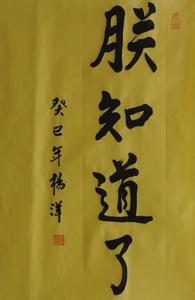 朕知道了
癸巳年杨洋